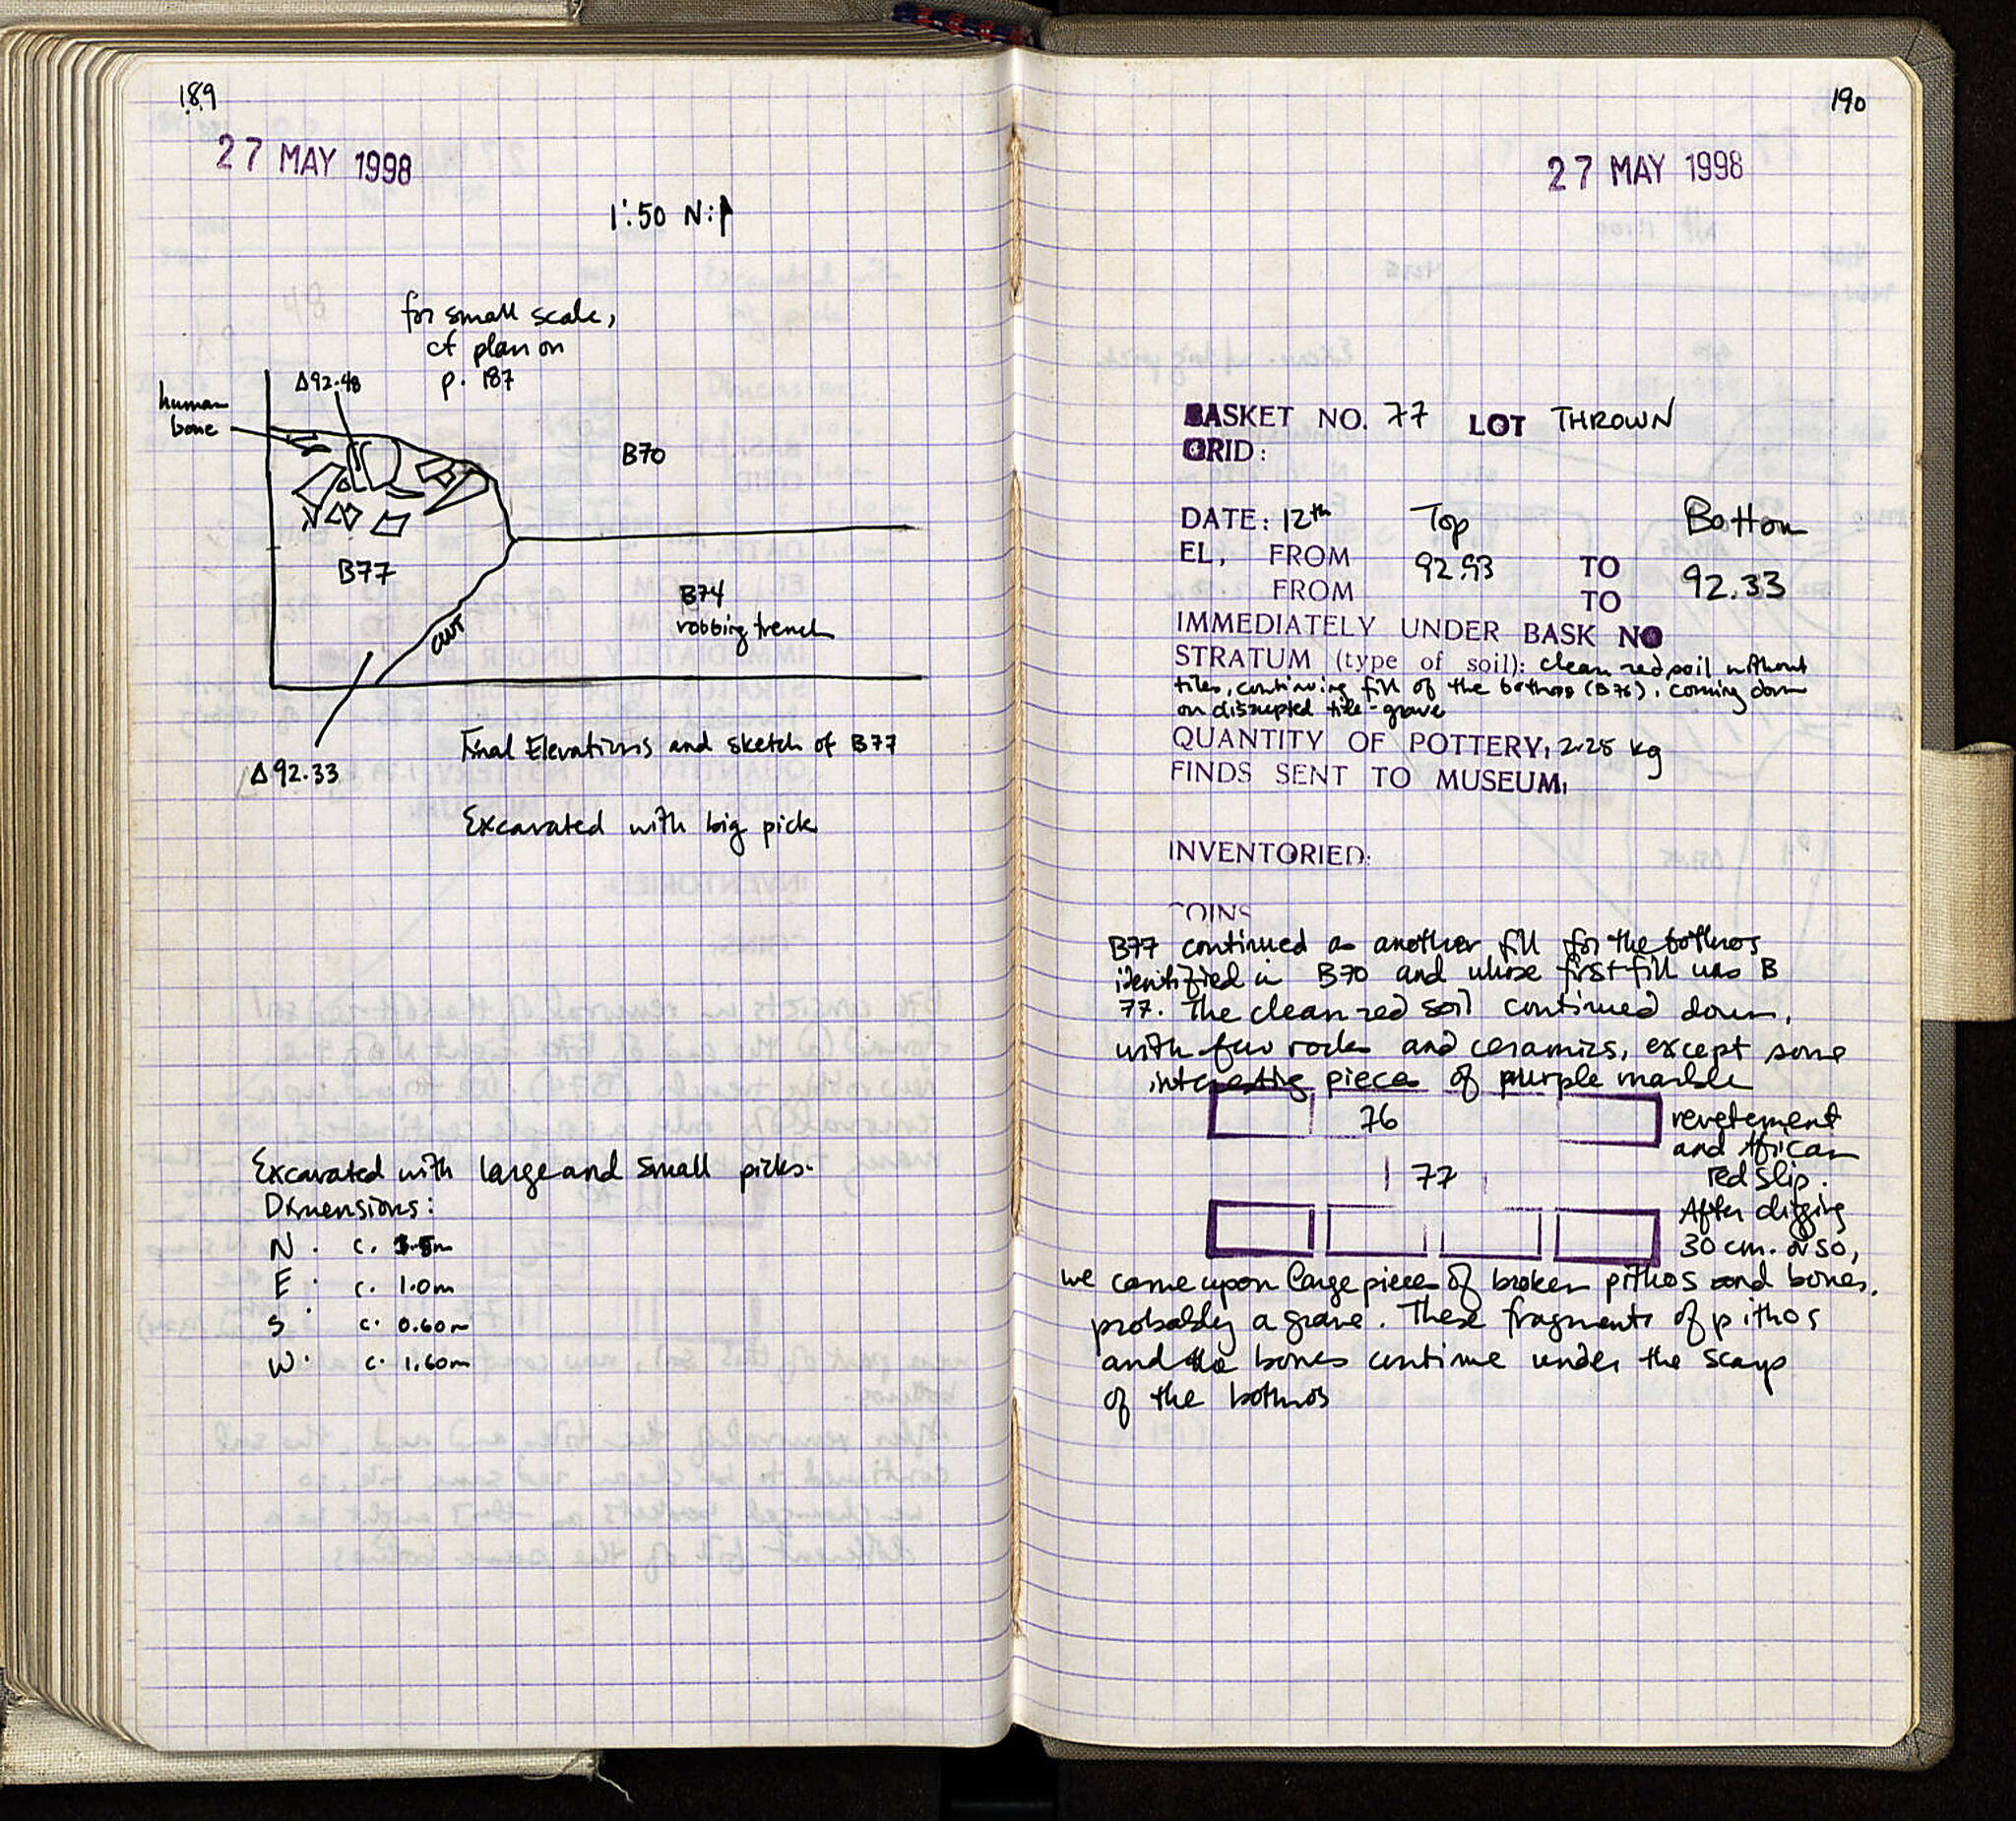 189
27 MAY 1998
1:50 N:
for small scale,
cf plan on
p. 187
Δ92.48
human
bone
B70
B77
B74
robbing trench
cut
Final Elevations and sketch of B77
Δ92.33
Excavated with big pick
Excavated with large and small picks.
Dimensions:
N. c.
E. c. 1.0m
S. c. 0.60m
W. c. 1.60m
190
27 MAY 1998
BASKET NO. 77 LOT THROWN
GRID:
DATE: 12th Top Bottom
EL, FROM 92.93 TO 92.33
FROM TO
IMMEDIATELY UNDER BASK NO
STRATUM (type of soil): clean red soil without
tiles, continuing fill of the bothros (B76), coming down
on disrupted tile-grave
QUANTITY OF POTTERY, 2.25 kg
FINDS SENT TO MUSEUM,
INVENTORIED:
COINS
B77 continued as another fill for the bothros
identified in B70 and whose first fill was B
77. The clean red soil continued down,
with few rocks and ceramics, except some
interesting pieces of purple marble
76 revetement
and African
77 red slip.
After digging
30 cm. or so,
we came upon large pieces of broken pithos and bones,
probably a grave. These fragments of pithos
and the bones continue under the scarp
of the bothros